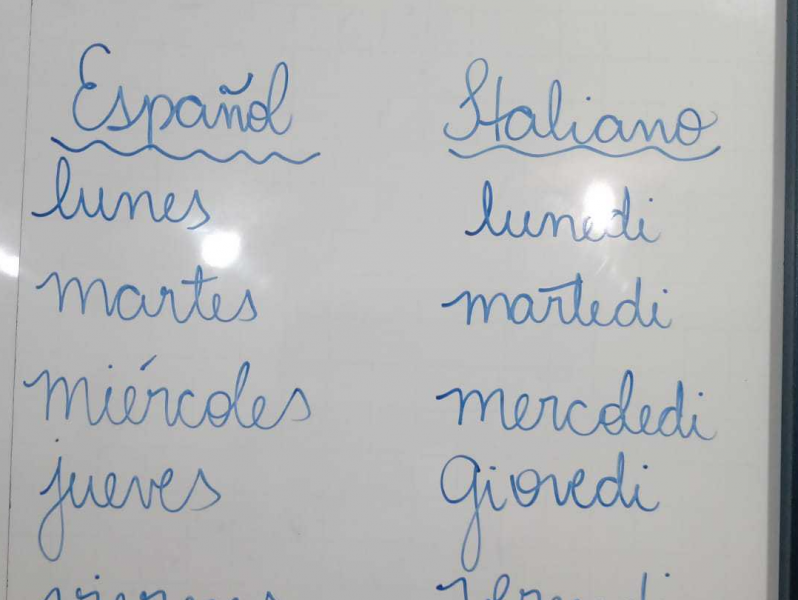 Español Italiano
lunes lunedi
martes martedi
miércoles mercoledi
jueves giovedi